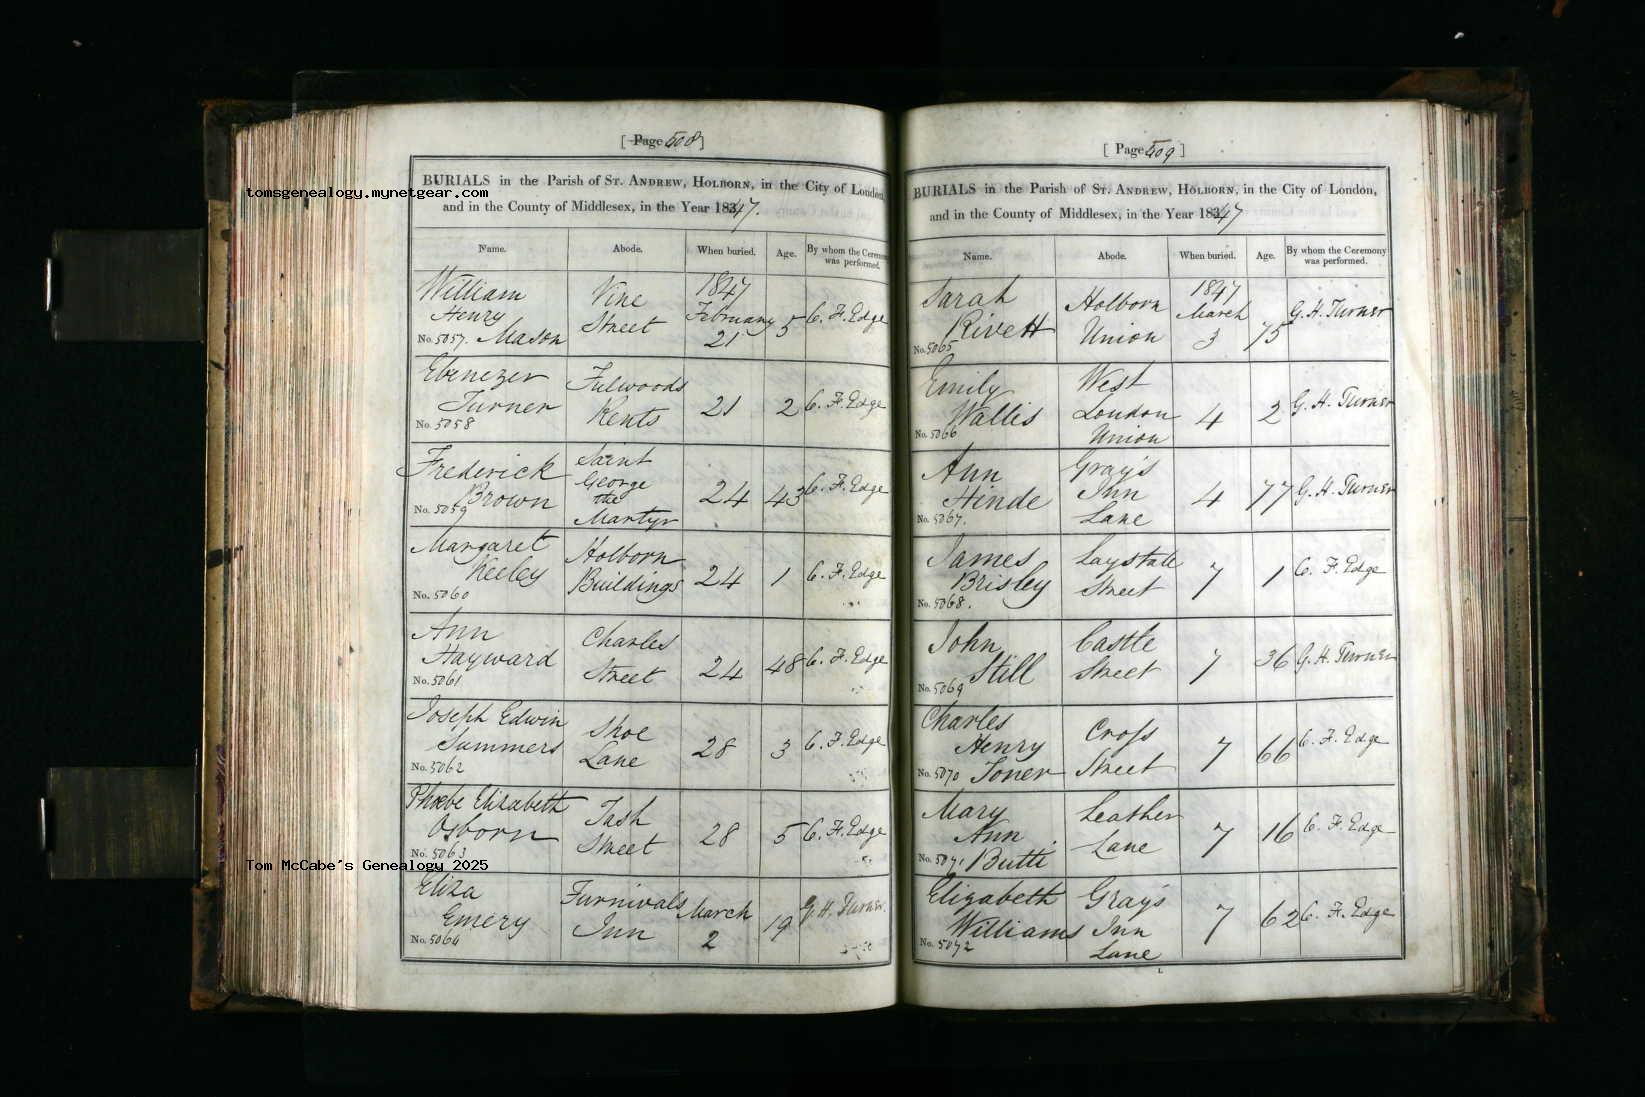 [ Page 508 ]
BURIALS in the Parish of ST. ANDREW, HOLBORN, in the City of London,
tomsgenealogy.mynetgear.com
and in the County of Middlesex, in the Year 1847.
Name. Abode. When buried. Age. By whom the Ceremony was performed.
William Vine 1847
Henry Street February 5 C. F. Edge
No. 5057. Mason 21
Ebenezer Fulwoods
Turner Rents 21 2 C. F. Edge
No. 5058
Frederick Saint
Brown George 24 43 C. F. Edge
No. 5059 the
Martyr
Margaret Holborn
Keeley Buildings 24 1 C. F. Edge
No. 5060
Ann Charles
Hayward Street 24 48 C. F. Edge
No. 5061
Joseph Edwin Shoe
Summers Lane 28 3 C. F. Edge
No. 5062
Phœbe Elizabeth Tash
Osborn Street 28 5 C. F. Edge
No. 5063
Tom McCabe's Genealogy 2025
Eliza Furnivals March
Emery Inn 2 19 G. H. Turner
No. 5064
[ Page 509 ]
BURIALS in the Parish of ST. ANDREW, HOLBORN, in the City of London,
and in the County of Middlesex, in the Year 1847
Name. Abode. When buried. Age. By whom the Ceremony was performed.
Sarah Holborn 1847
Rivett Union March 75 G. H. Turner
No. 5065 3
Emily West
Wallis London 4 2 G. H. Turner
No. 5066 Union
Ann Gray's
Hinde Inn 4 77 G. H. Turner
No. 5067. Lane
James Laystall
Brisley Street 7 1 C. F. Edge
No. 5068.
John Castle
Still Street 7 36 G. H. Turner
No. 5069
Charles Cross
Henry Street 7 66 C. F. Edge
No. 5070 Toner
Mary Leather
Ann Lane 7 16 C. F. Edge
No. 5071 Butti
Elizabeth Gray's
Williams Inn 7 62 C. F. Edge
No. 5072 Lane